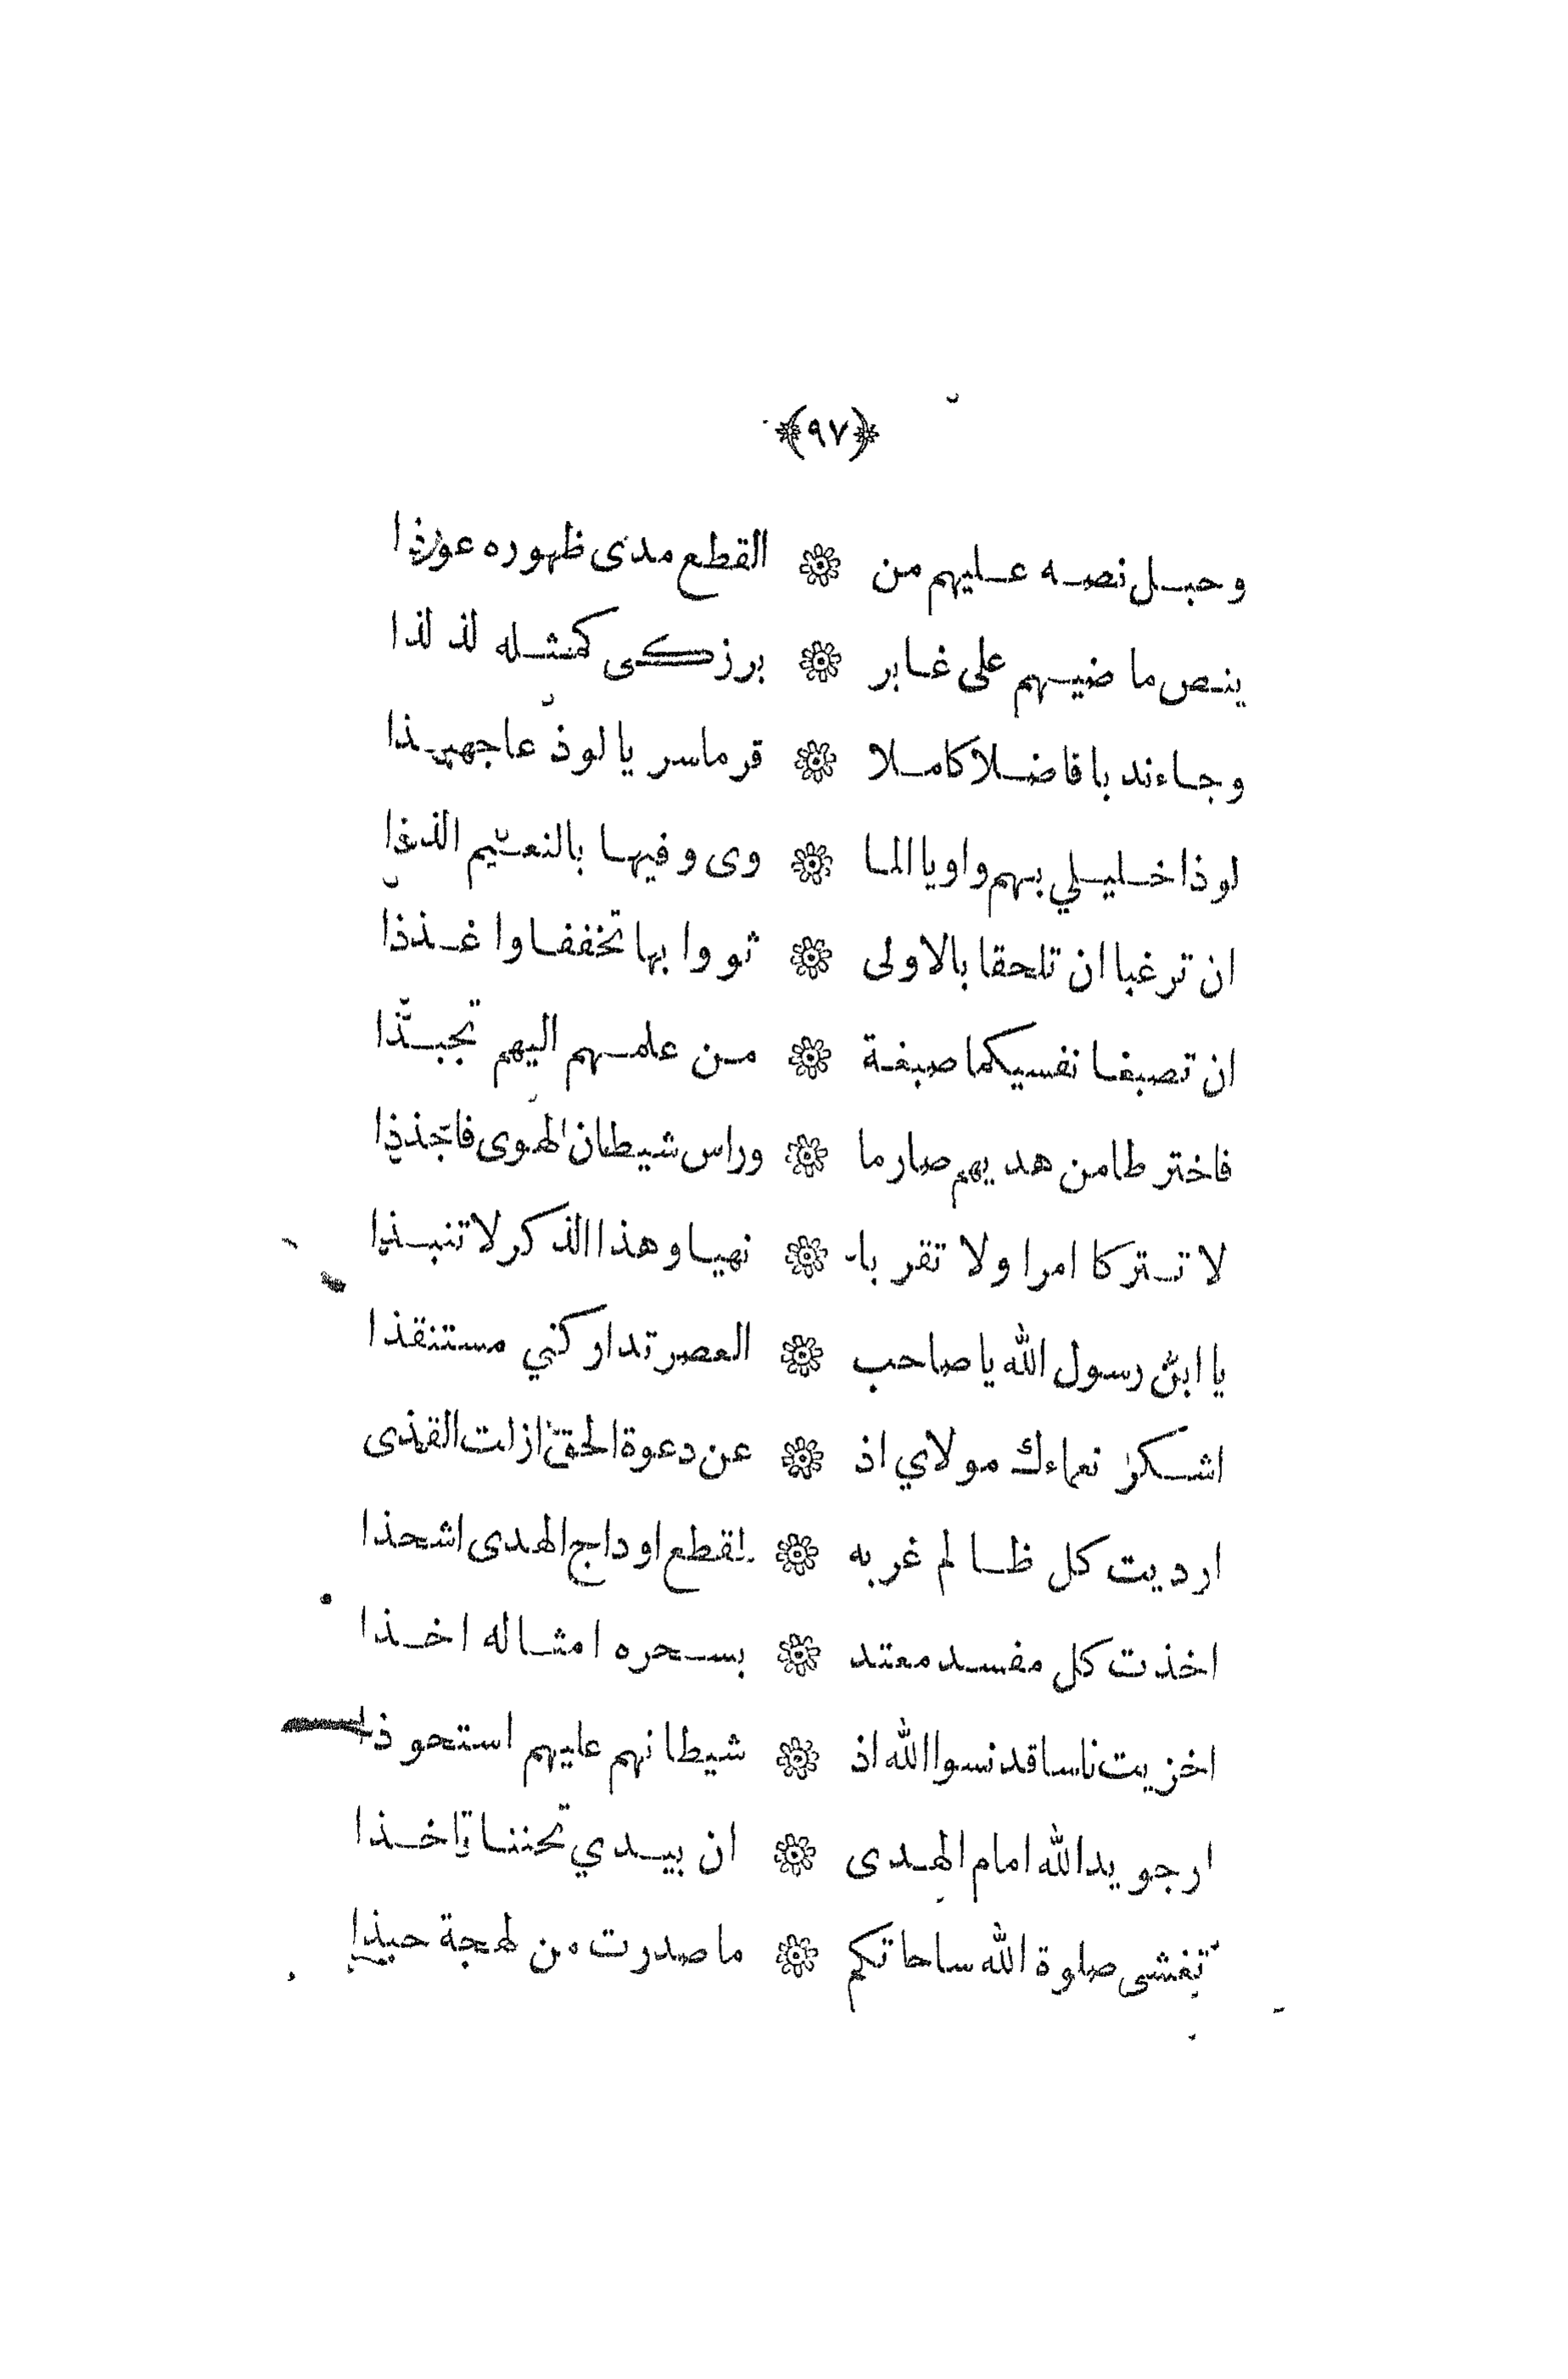 ﴿٩٧﴾
وحبل نصه عليهم من ❁ القطع مدى ظهوره عوذا
ينص ماضيهم على غابر ❁ برزكى كمثله لذ لذا
وجاء ندبا فاضلا كاملا ❁ قرما سريا لوذعا جهبذا
لوذا خليلي بهم واويا الما ❁ وى وفيها بالنعيم الذذا
ان ترغبا ان تلحقا بالاولى ❁ ثووا بها تخففا واغذذا
ان تصبغا نفسيكما صبغة ❁ من علمهم اليهم تجبذا
فاخترطا من هديهم صارما ❁ وراس شيطان الهوى فاجذذا
لا تتركا امرا ولا تقربا ❁ نهيا وهذا الذكر لا تنبذا
يا ابن رسول الله يا صاحب ❁ العصر تداركني مستنقذا
اشكر نعماءك مولاي اذ ❁ عن دعوة الحق ازلت القذى
ارديت كل ظالم غربه ❁ لقطع اوداج الهدى اشحذا
اخذت كل مفسد معتد ❁ بسحره امثاله اخذا
اخزيت ناسا قد نسوا الله اذ ❁ شيطانهم عليهم استحوذا
ارجو يد الله امام الهدى ❁ ان بيدي تحننا تاخذا
تغشى صلوة الله ساحاتكم ❁ ما صدرت من لهجة حبذا